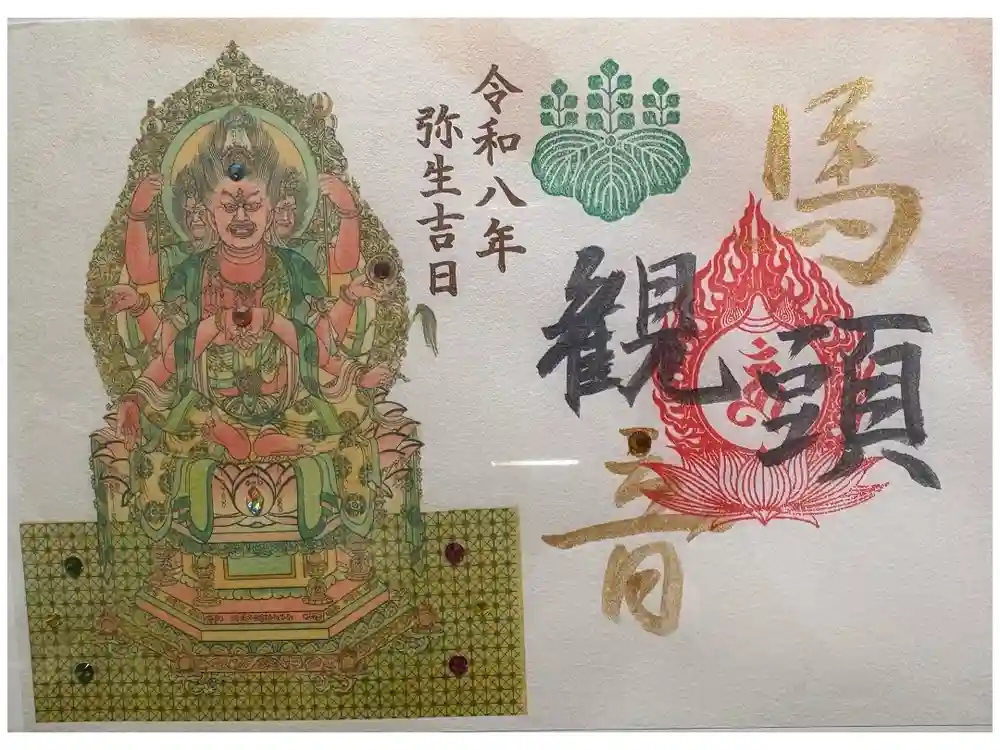 馬頭
観音
令和八年
弥生吉日